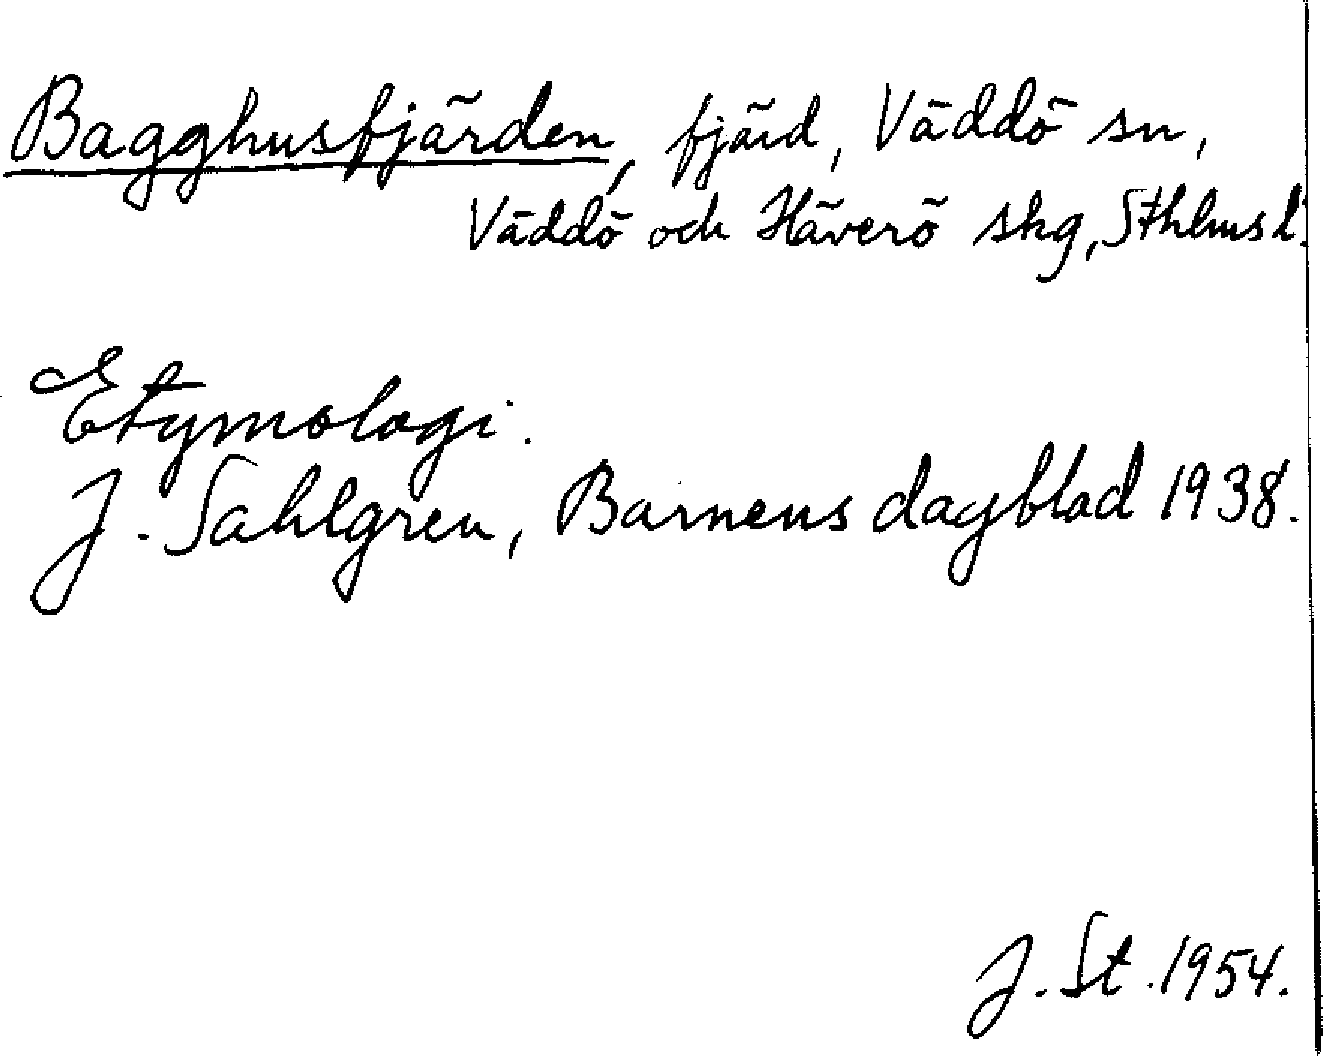 Bagghusfjärden, fjärd, Väddö sn,
Väddö och Häverö skg, Sthlms l.
Etymologi.
J. Sahlgren, Barnens dagblad 1938.
J. St. 1954.